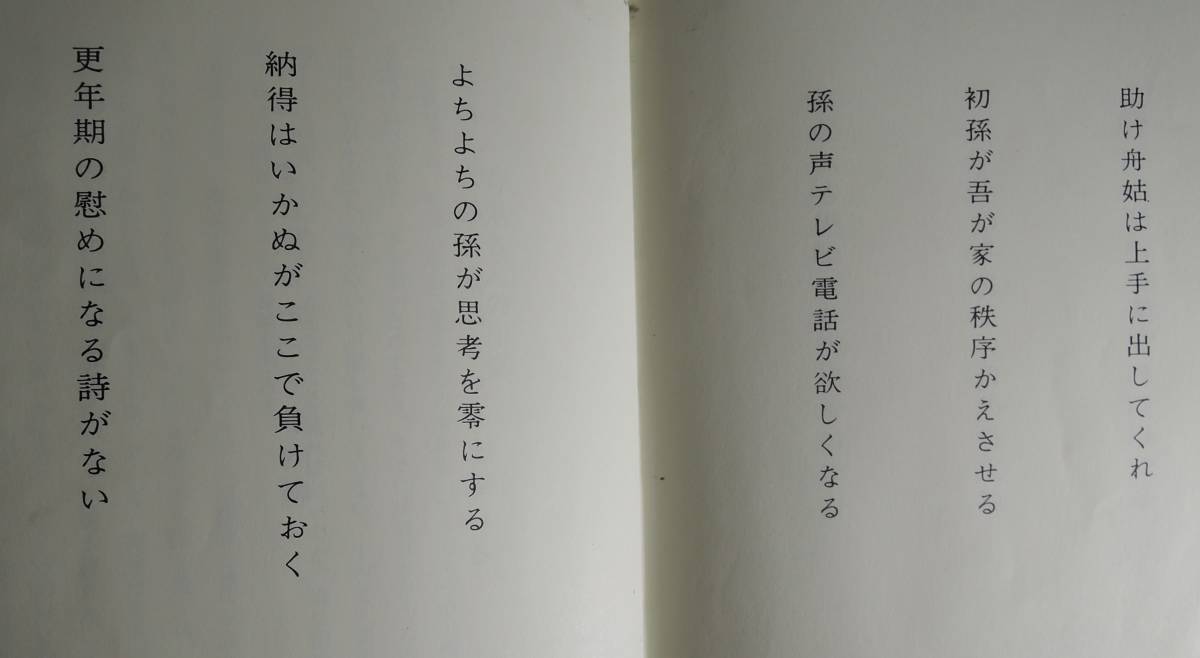 助け舟姑は上手に出してくれ
初孫が吾が家の秩序かえさせる
孫の声テレビ電話が欲しくなる
よちよちの孫が思考を零にする
納得はいかぬがここで負けておく
更年期の慰めになる詩がない